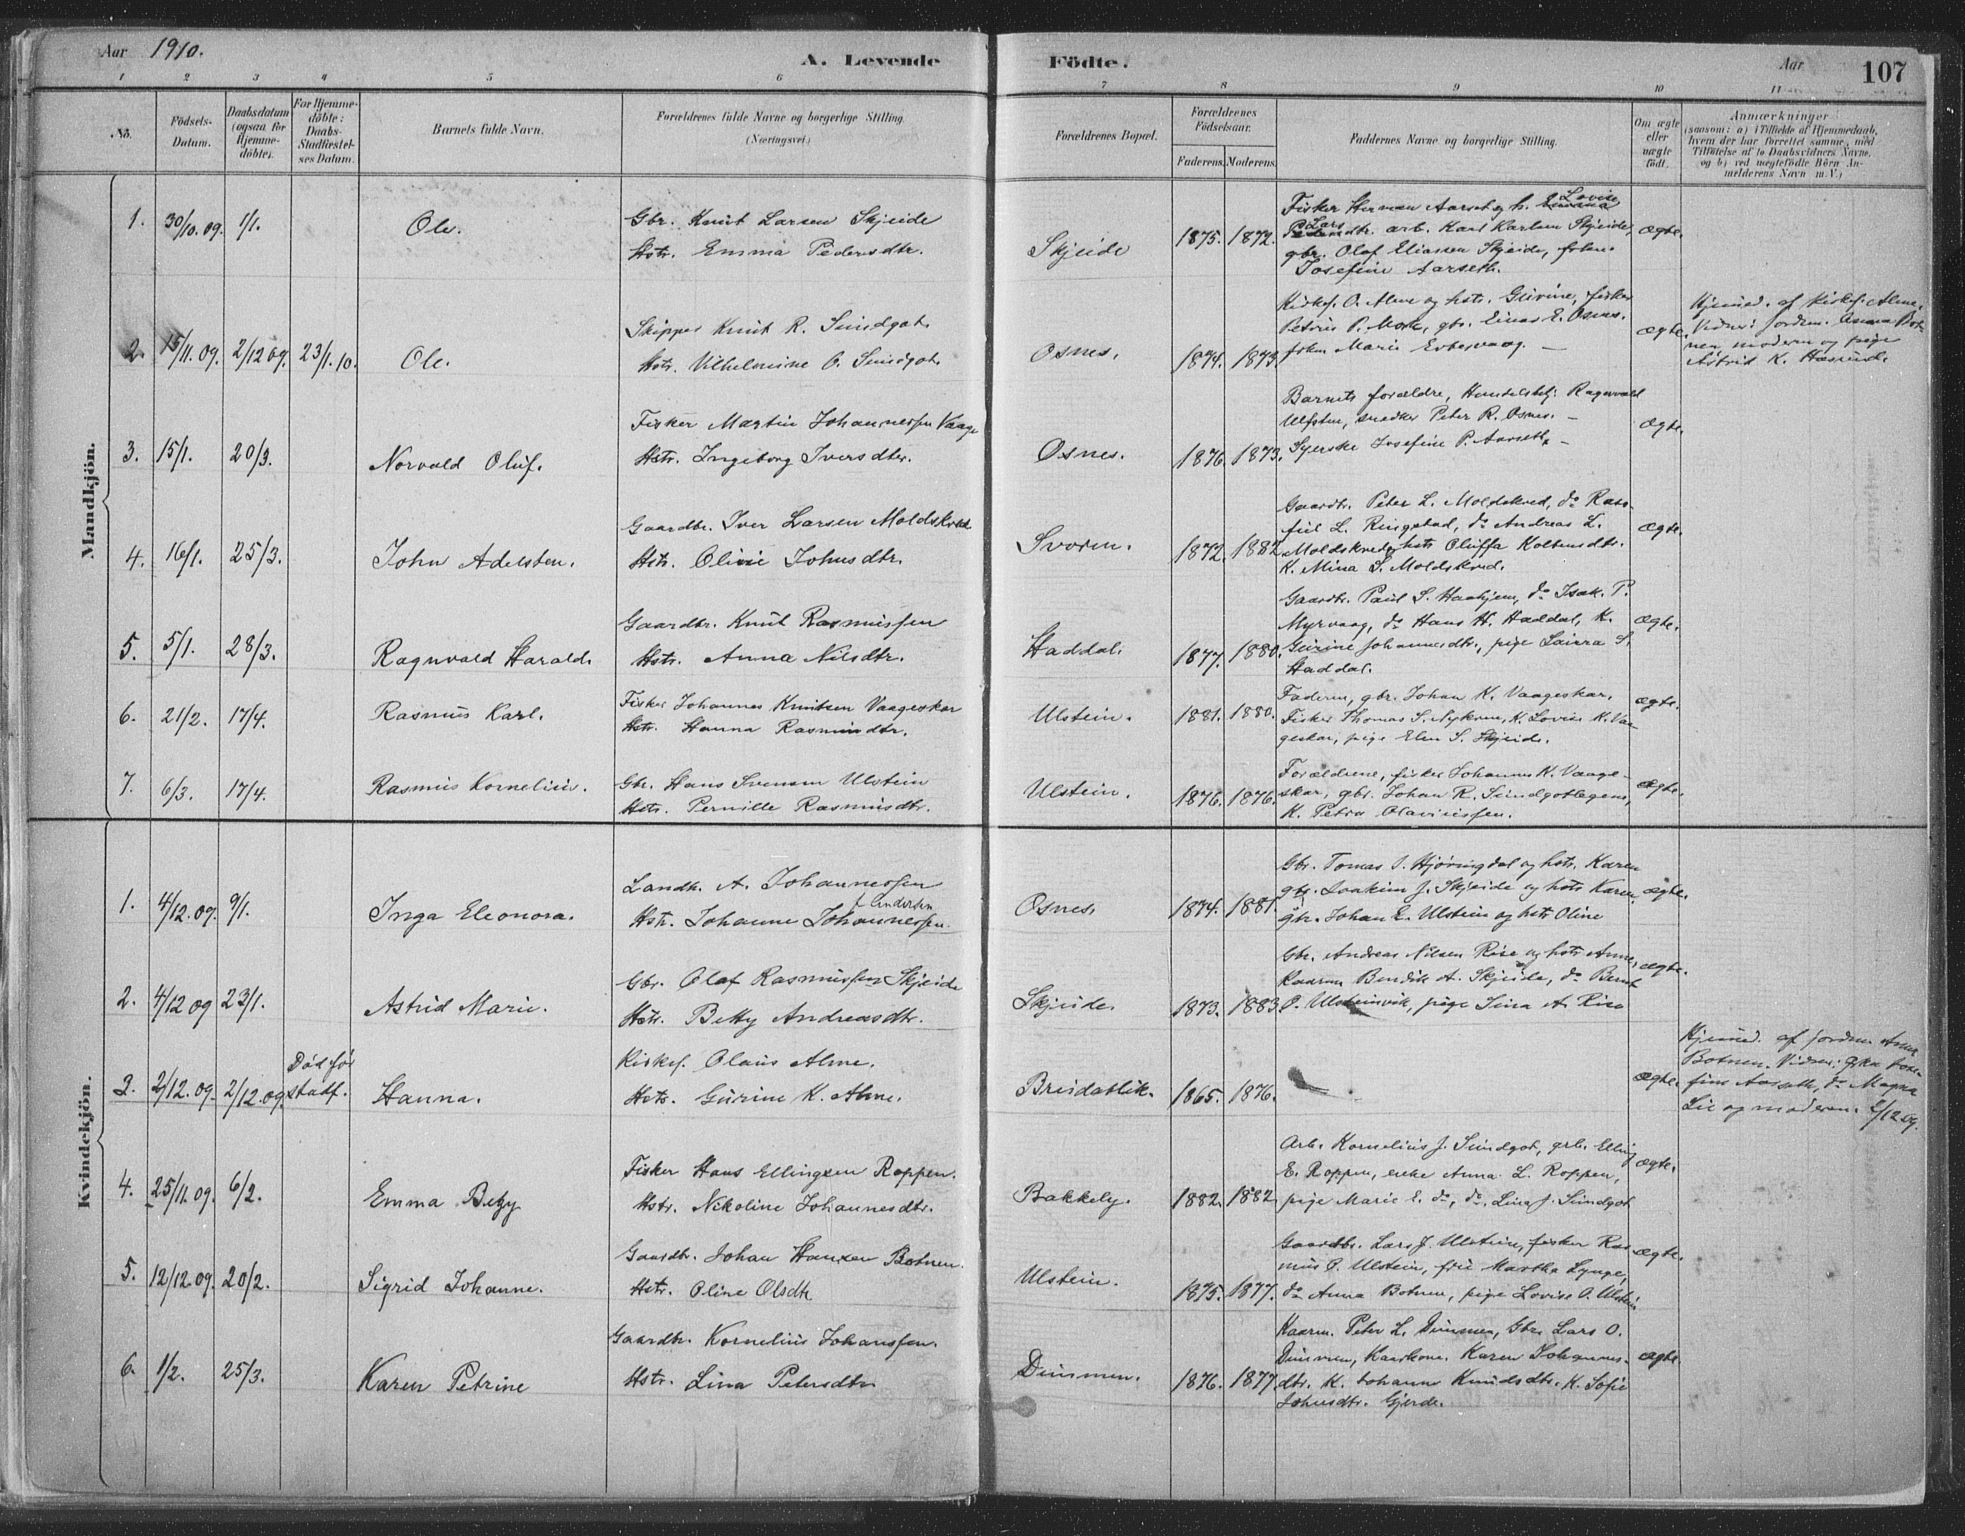 Aar 1910. A. Levende Födte. Aar 107
1 2 3 4 5 6 7 8 9 10 11
No. Födsels-Datum. Daabsdatum (ogsaa for Hjemme-döbte). For Hjemme-döbte: Daabs-Stadfæstel-ses Datum. Barnets fulde Navn. Forældrenes fulde Navne og borgerlige Stilling. (Næringsvei) Forældrenes Bopæl. Forældrenes Födselsaar. Faderens. Moderens. Faddernes Navne og borgerlige Stilling. Om ægte eller uægte födt. Anmærkninger (saasom: a) i Tilfælde af Hjemmedaab, hvem der har forrettet samme, med Tilföielse af to Daabsvidners Navne, og b) ved uegtefödte Börn An-melderens Navn m. V.)
Mandkjön.
1. 30/10.09. 1/1. Ole. Gbr. Knut Larsen Skjeide
Hstr. Emma Pedersdtr. Skjeide 1875. 1872. ægte.
Fisker Herman Aarset og h. Lovise
Larsdtr. arb. Karl Karlsen Skjeide,
gbr. Olaf Eliassen Skjeide, frkn.
Josefine Aarseth.
2. 15/11.09. 2/12 09. 23/1.10. Ole. Skipper Knut R. Sundgot.
Hstr. Vilhelmine O. Sundgot. Osnes. 1874. 1873. ægte.
Kirkes. O. Alme og hstr. Gurine, fisker
Petrus P. Mork, gbr. Einar E. Osnes.
frkn Marie
Hjemmed. af Kirkes. Alme.
Vidner: Jordm. Anna Bot-
nen, moderen og pige
Astrid K. Hasund.
3. 15/1. 20/3. Norvald Oluf. Fisker Martin Johannessen Vaage
Hstr. Ingeborg Iversdtr. Osnes. 1876. 1873. ægte.
Barnets forældre, Handelsbetj. Ragnvald
Ulfsten, snedker Peter R. Osnes.
Syerske Josefine P. Aarseth.
4. 16/1. 25/3. John Adelsten. Gaardbr. Iver Larsen Moldskred
Hstr. Olivie Johnsdtr. Svoren. 1872. 1882 ægte.
Gaardbr. Peter L. Moldskred, do Ras-
L. Ringstad, do Andreas L.
Moldskred, hstr Oluffa
K. Mina S. Moldskred.
5. 5/1. 28/3. Ragnvald Harald. Gaardbr. Knut Rasmussen
Hstr. Anna Nilsdtr. Haddal. 1877. 1880. ægte.
Gaardbr. Paul S. Haahjem, do Isak P.
Myrvaag, do Hans H. Haddal, K.
Gurine Johannesdtr., pige Laura S.
Haddal.
6. 21/2. 17/4. Rasmus Karl. Fisker Johannes Knutsen Vaageskar
Hstr. Hanna Rasmusdtr. Ulstein. 1881. 1880. ægte.
Faderen, gbr. Johan K. Vaageskar.
Fisker Thomas S. Nykrem, K. Lovise K. Vaa-
geskar, pige Elen S. Skjeide.
7. 6/3. 17/4. Rasmus Kornelius. Gbr. Hans Svensen Ulstein
Hstr. Pernille Rasmusdtr. Ulstein. 1876. 1876. ægte.
Forældrene, fisker Johannes K. Vaage-
skar, gbr. Johan R. Sundgotlegene,
K. Petra Olavsussen.
Kvindekjön.
1. 4/12.09. 9/1. Inga Eleonora. Landh. A. Johannessen
f. Andersen
Hstr. Johanne Johannessen. Osnes 1874. 1881. ægte.
Gbr. Tomas I. Hjöringdal og hstr. Karen
gbr. Joakim J. Skjeide og hstr Karen,
gbr. Johan E. Ulstein og hstr Oline
2. 4/12 09 23/1. Astrid Marie. Gbr. Olaf Rasmussen Skjeide
Hstr. Betty Andreasdtr. Skjeide. 1873. 1883 ægte.
Gbr. Andreas Nilsen Rise og hstr Anne,
Kaarm Bendik A. Skjeide, do Bernt
P. Ulsteinvik, pige Lina A Rise
3. 2/12.09. 2/12.09. Död för
stadf. Hanna. Kirkes. Olaus Alme.
Hstr. Gurine K. Alme. Breidablik. 1865. 1876. ægte.
Hjemmed. af jordm. Anna
Botnen. Vidner: frkn Jose-
fine Aarseth, do Magna
Lie og moderen. 2/12 09.
4. 25/11.09. 6/2. Emma Betzy Fisker Hans Ellingsen Roppen.
Hstr. Nikoline Johannesdtr. Bakkely. 1882. 1882 ægte.
Arb. Kornelius J. Sundgot, grb. Elling
E. Roppen, enke Anna L. Roppen,
pige Marie E. do, do, Lina J. Sundgot
5. 12/12.09. 20/2. Sigrid Johanne. Gaardbr. Johan Hansen Botnen.
Hstr. Oline Olsdtr Ulstein. 1875. 1877. ægte.
Gaardbr. Lars J. Ulstein, fisker Ras-
mus P. Ulstein, frue Martha Lynge,
do Anna Botnen, pige Lovise O. Ulstein
6. 1/2. 25/3. Karen Petrine Gaardbr. Kornelius Johanssen.
Hstr. Lina Petersdtr Dimmen. 1876. 1877 ægte.
Kaarm. Peter L. Dimmen, Gbr. Lars O.
Dimmen, Kaarkone. Karen Johannes-
dtr. K. Johanne Knudsdtr. K. Sofie
Johnsdtr. Gjerde.